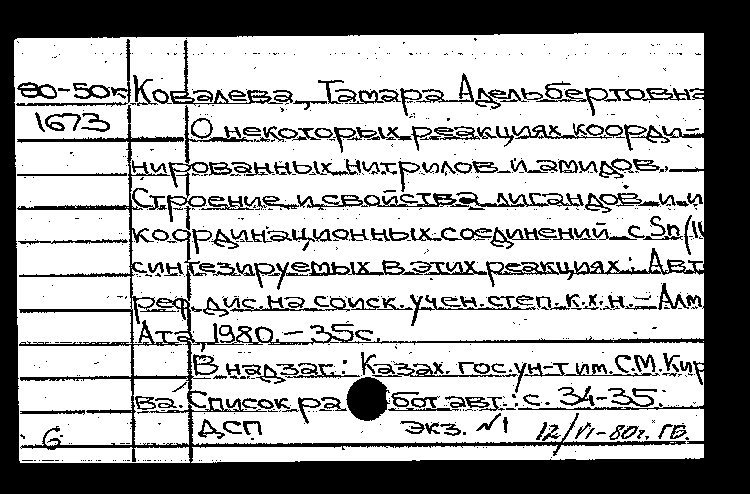 80-50к Ковалева, Тамара Адельбертовна
1673 О некоторых реакциях коорди-
нированных нитрилов и амидов.
Строение и свойства лигандов и и
координационных соединений с Sn(IV
синтезируемых в этих реакциях: Авт
реф. дис. на соиск. учен. степ. к.х.н. – Алм
Ата, 1980. – 35с.
В надзаг.: Казах. гос. ун-т им. С.М. Кир
ва. Список ра бот авт.: с. 34-35.
6 ДСП экз. №1 12/VI-80г. ГБ.